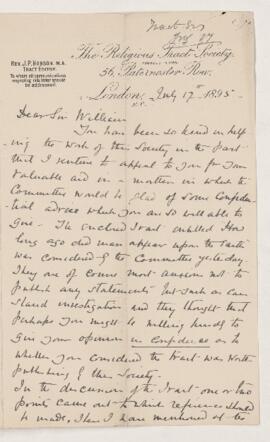 Tract Soc
The Religious Tract Society,
56, Paternoster Row,
REV. J. P. HOBSON. M.A.
TRACT EDITOR.
To whom all communications
respecting this letter should
be addressed.
London, July 17th 1895
E.C.
Dear Sir William
You have been so kind in help
ing the work of the Society in the past
that I venture to appeal to you for your
valuable aid in a matter in which the
Committee would be glad of some Confiden
tial advice which you are so well able to
give. The enclosed tract entitled How
long ago did man appear upon the Earth
was considered by the Committee yesterday.
They are of course most anxious not to
publish any statements but such as can
stand investigation and they thought that
perhaps you might be willing kindly to
give your opinion in confidence as to
whether you considered the tract was worth
publishing by the Society.
In the discussion of the tract one or two
points came out to which reference should
be made. These I have mentioned at the